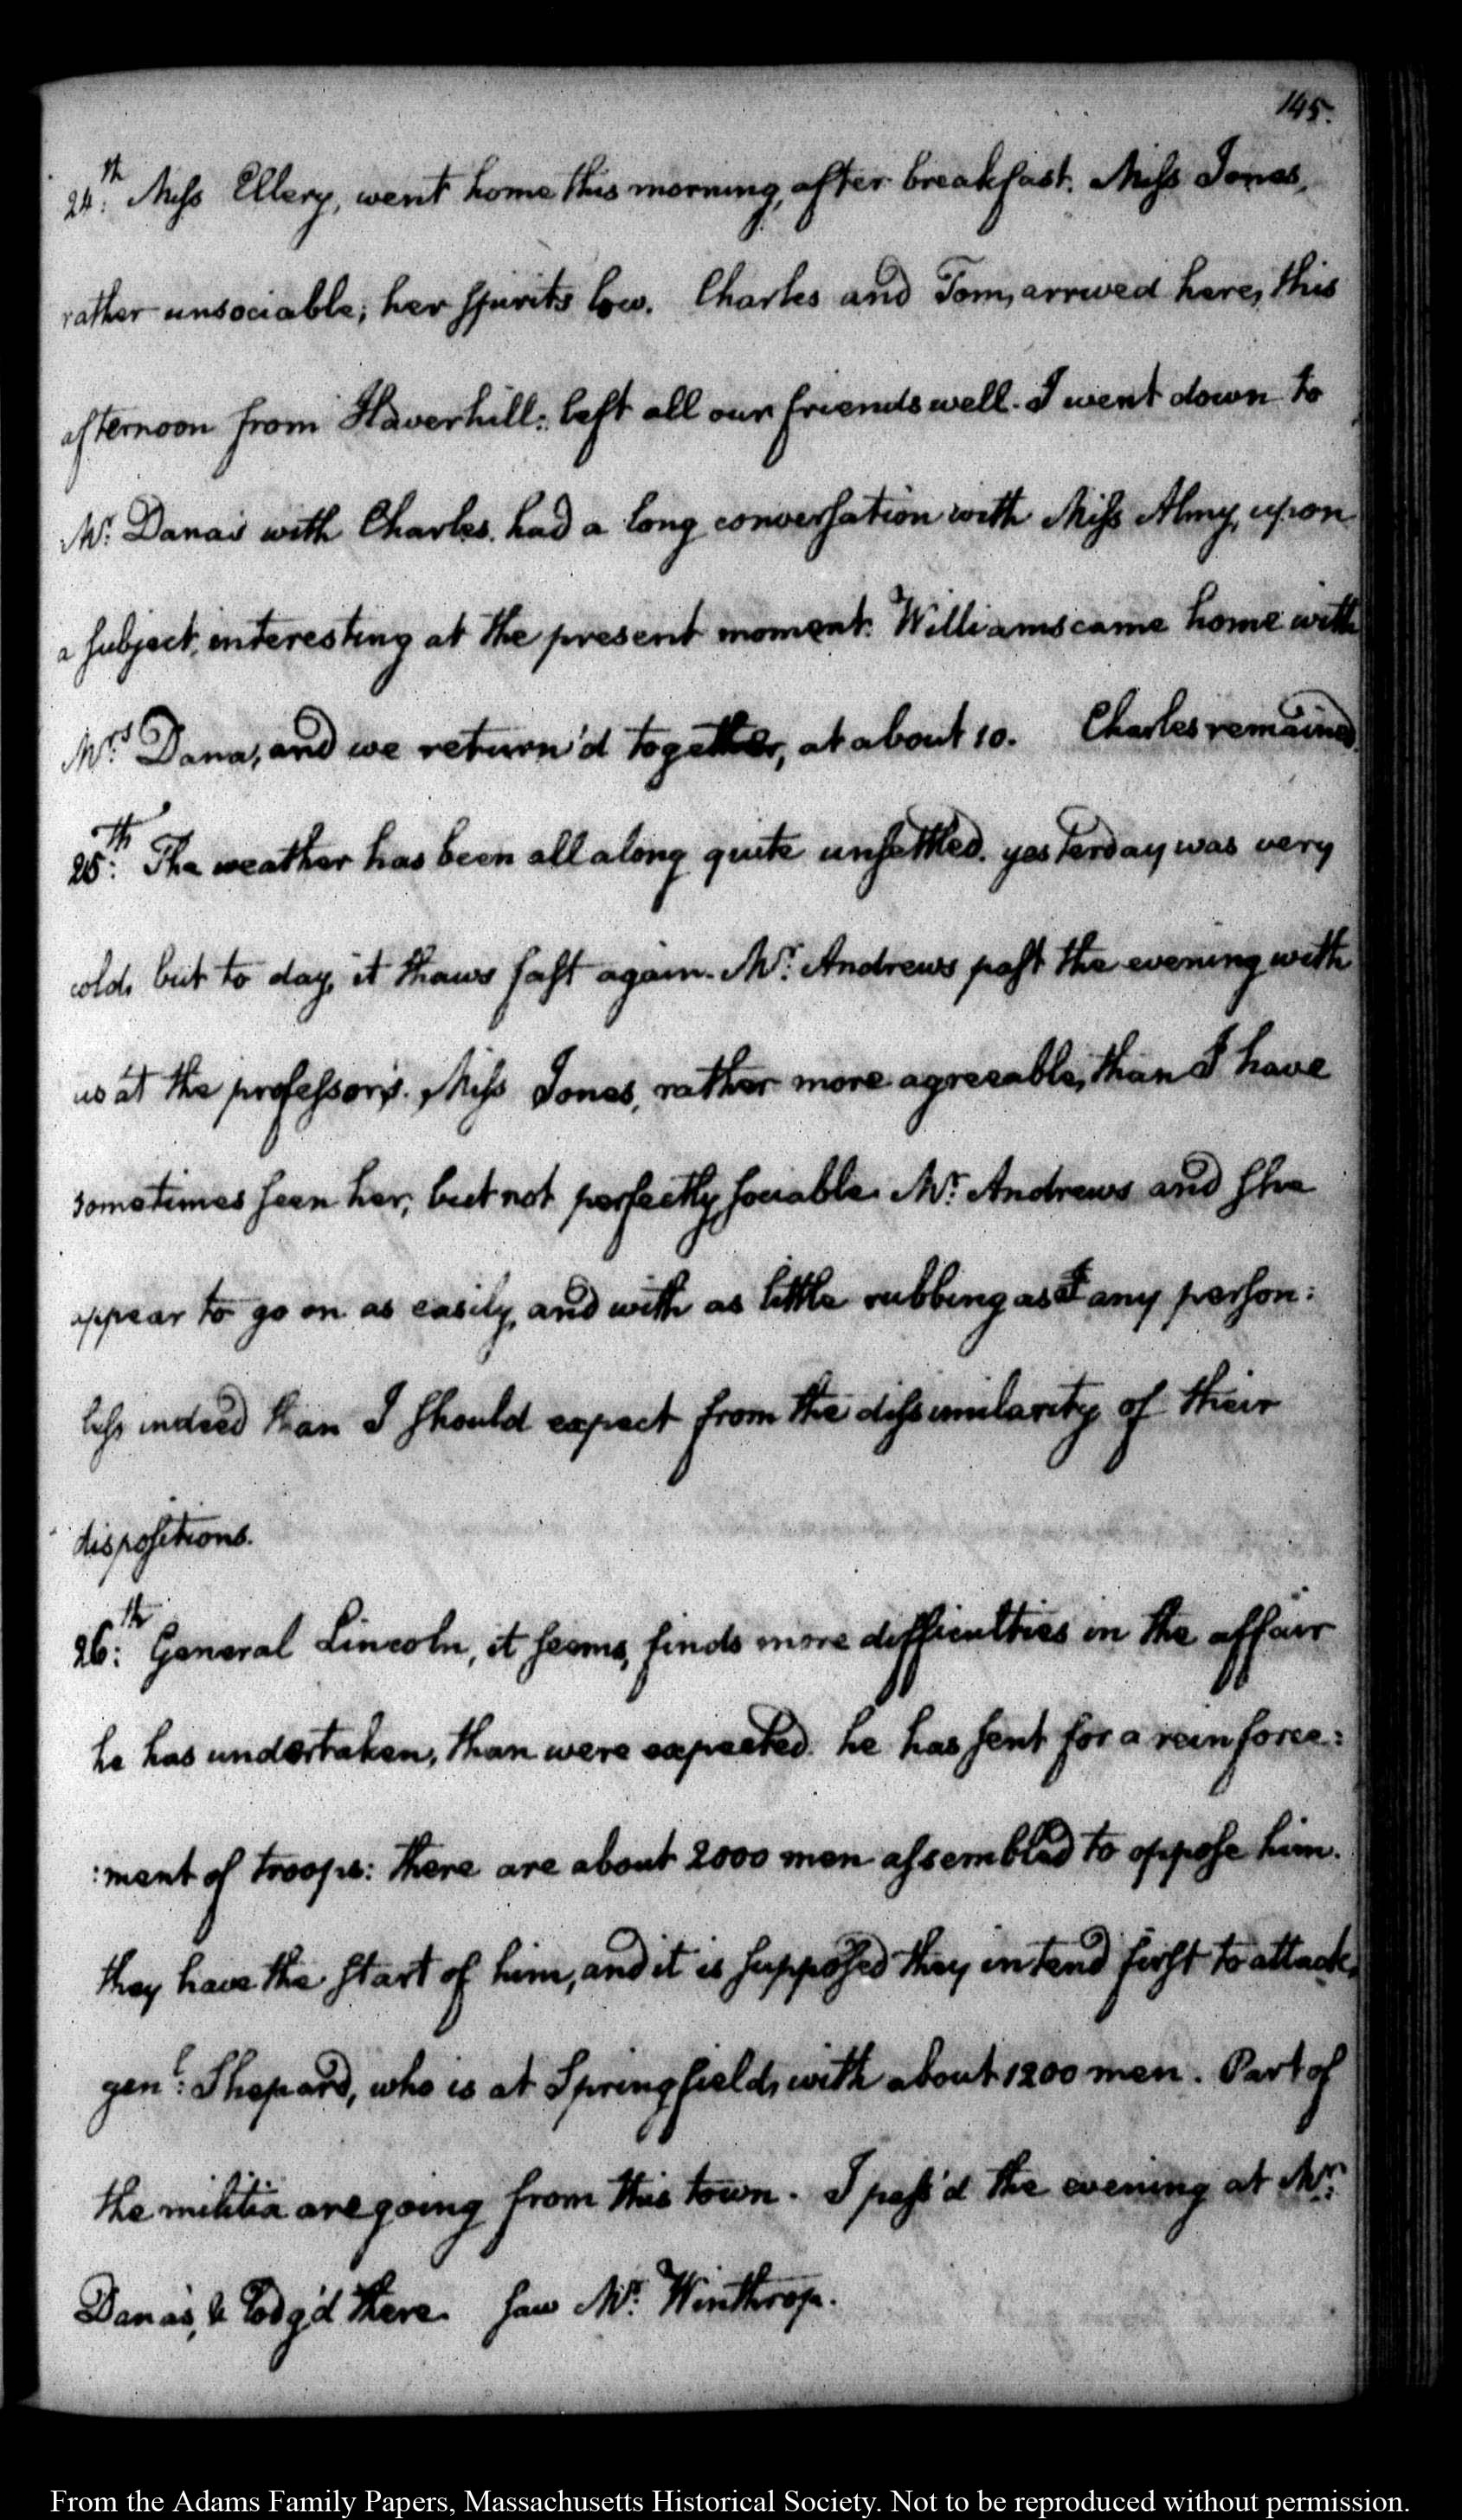 145.
24.th Miss Ellery, went home this morning, after breakfast. Miss Jones,
rather unsociable; her spirits low. Charles and Tom, arrived here, this
afternoon from Haverhill: left all our friends well. I went down to
Mr. Dana's with Charles. had a long conversation with Miss Almy, upon
a subject, interesting at the present moment. Williams came home with
Mrs. Dana, and we return'd together, at about 10. Charles remained.
25.th The weather has been all along quite unsettled. yesterday was very
cold, but to day, it thaws fast again. Mr. Andrews past the evening with
us at the professor's. Miss Jones, rather more agreeable, than I have
sometimes seen her, but not perfectly sociable. Mr. Andrews and she
appear to go on as easily, and with as little rubbing as any person:
less indeed than I should expect from the dissimilarity of their
dispositions.
26.th General Lincoln, it seems, finds more difficulties in the affair
he has undertaken, than were expected. he has sent for a reinforce:
:ment of troops: there are about 2000 men assembled to oppose him.
they have the start of him, and it is supposed they intend first to attack,
genl: Shepard, who is at Springfield, with about 1200 men. Part of
the militia are going from this town. I pass'd the evening at Mr.
Dana's, & lodg'd there. saw Mr. Winthrop.
From the Adams Family Papers, Massachusetts Historical Society. Not to be reproduced without permission.